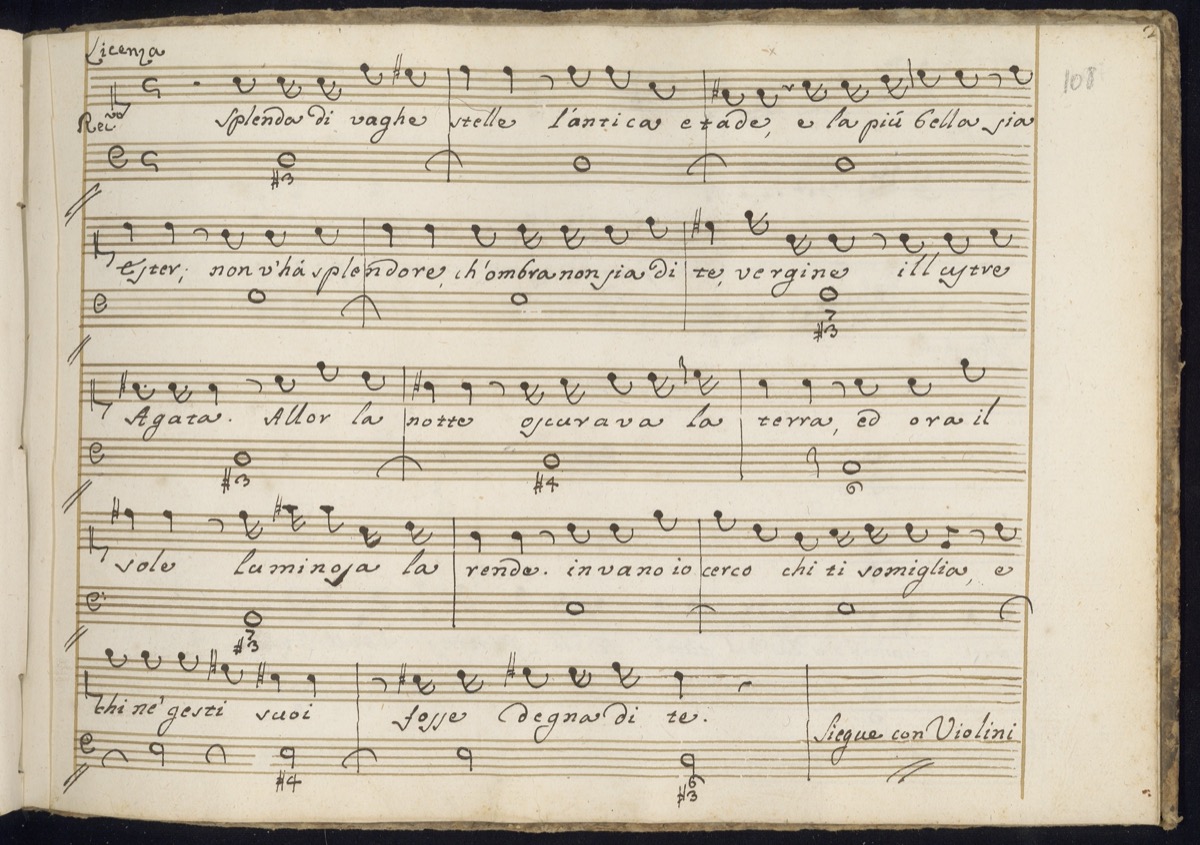 Licenza
108
Recvo
Splenda di vaghe stelle l'antica etade, e la più bella sia
#3
Ester; non v'há splendore, ch'ombra non sia di te, vergine illustre
7
#3
Agata. Allor la notte oscurava la terra, ed ora il
#3 #4 6
sole luminosa la rende. invano io cerco chi ti somiglia, e
7
#3
chi ne' gesti suoi fosse degna di te.
Siegue con Violini
#4 6
#3